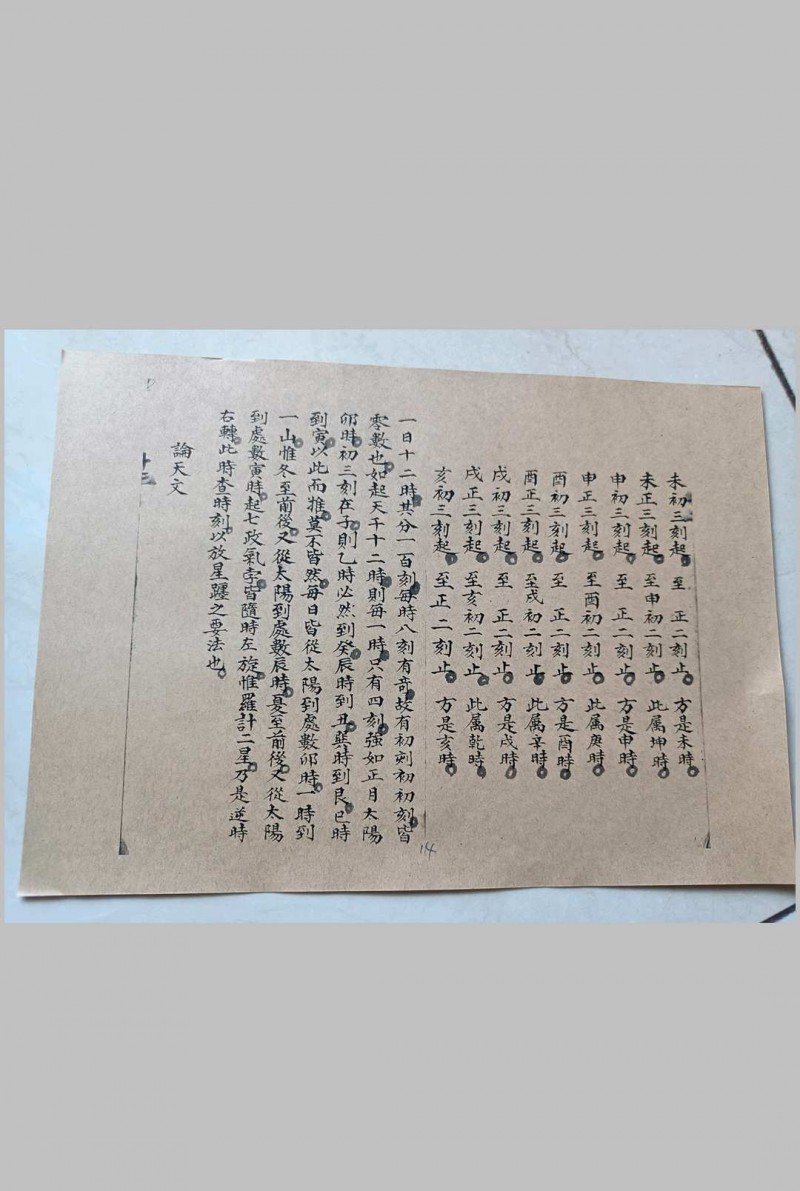 未初三刻起 至 正二刻止 方是未時
未正三刻起 至申初二刻止 此属坤時
申初三刻起 至 正二刻止 方是申時
申正三刻起 至酉初二刻止 此属庚時
酉初三刻起 至 正二刻止 方是酉時
酉正三刻起 至戌初二刻止 此属辛時
戌初三刻起 至 正二刻止 方是戌時
戌正三刻起 至亥初二刻止 此属乾時
亥初三刻起 至正二刻止 方是亥時
一日十二時其分一百刻每時八刻有奇故有初刻初初刻皆
零數也如起天干十二時則每一時只有四刻強如正月太陽
卯時初三刻在子則乙時必然到癸辰時到丑巽時到艮巳時
到寅以此而推莫不皆然每日皆從太陽到處數卯時一時到
一山惟冬至前後又從太陽到處數辰時夏至前後又從太陽
到處數寅時起七政氣孛皆隨時左旋惟羅計二星乃是逆時
右轉此時查時刻以放星躔之要法也
論天文
十三
14